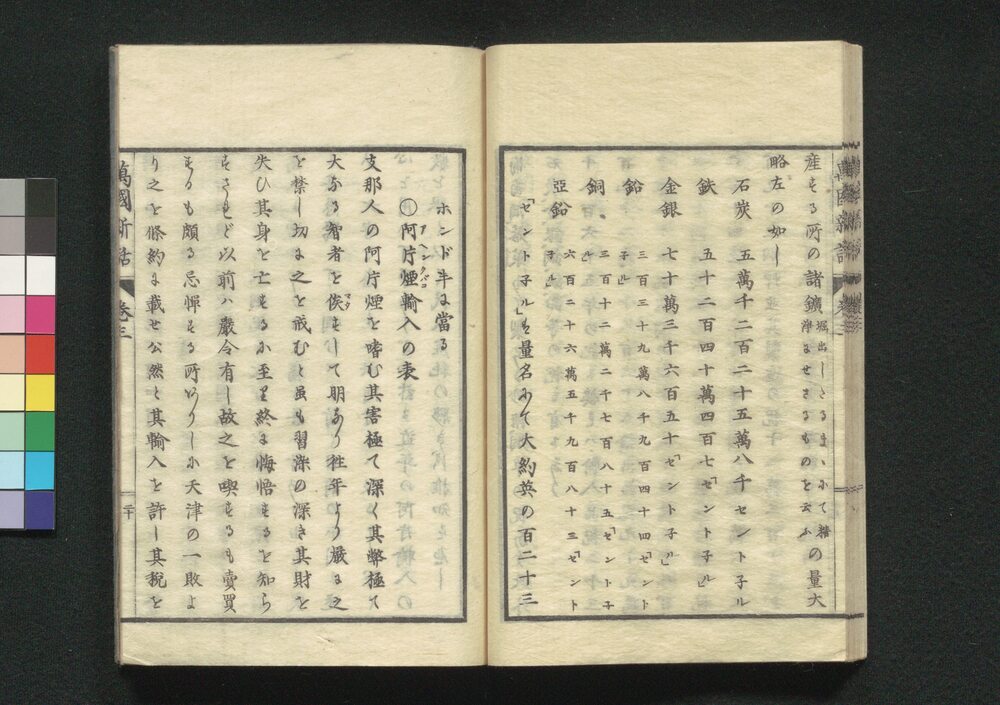 産する所の諸鑛堀出したるまゝにて精浄ませさるものを云ふの量大
略左の如し
石炭 五萬千二百二十五萬八千セント子ル
鉄 五十二百四十萬四百七「セント子ル」
金銀 七十萬三千六百五十「セント子ル」
鉛 三百三十九萬八千九百四十四「セント子ル」
銅 三百十二萬二千七百八十五「セント子ル」
亞鉛 六百二十六萬五千九百八十三「セント子ル」
「セント子ル」は量名にて大約英の百二十三
ホンド半に當る
阿片煙輸入の表
アヘンタバコ
支那人の阿片煙を嗜む其害極て深く其弊極て
大なる智者を俟すして明なり往年より嚴に之
マタ
を禁し切に之を戒むと雖も習染の深き其財を
失ひ其身を亡するに至り終に悔悟するを知ら
すされど以前ハ嚴令有し故之を喫するも賣買
するも頗る忌憚する所ありしに天津の一敗よ
り之を條約に載せ公然と其輸入を許し其税を
萬國新話 巻三 二十